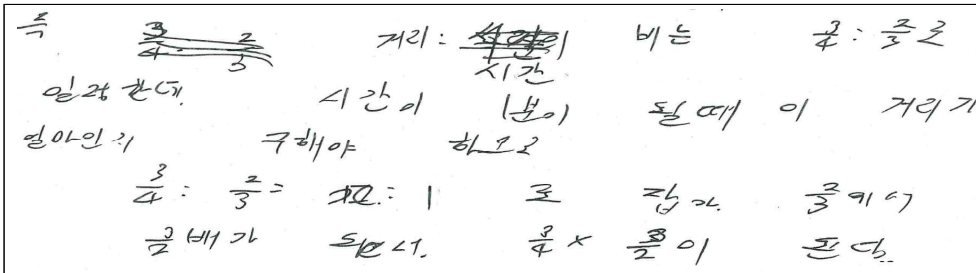 즉 거리 : 시간 비는 3/4 : 2/3 로
일정한데 시간이 1분이 될때 이 거리가
얼마인지 구해야 하므로
3/4 : 2/3 = : 1 로 잡아 2/3에서
3/2배가 되면서. 3/4 × 3/2이 된다.